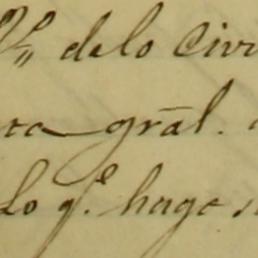 de lo Civi
grãl.
Lo q.e hago